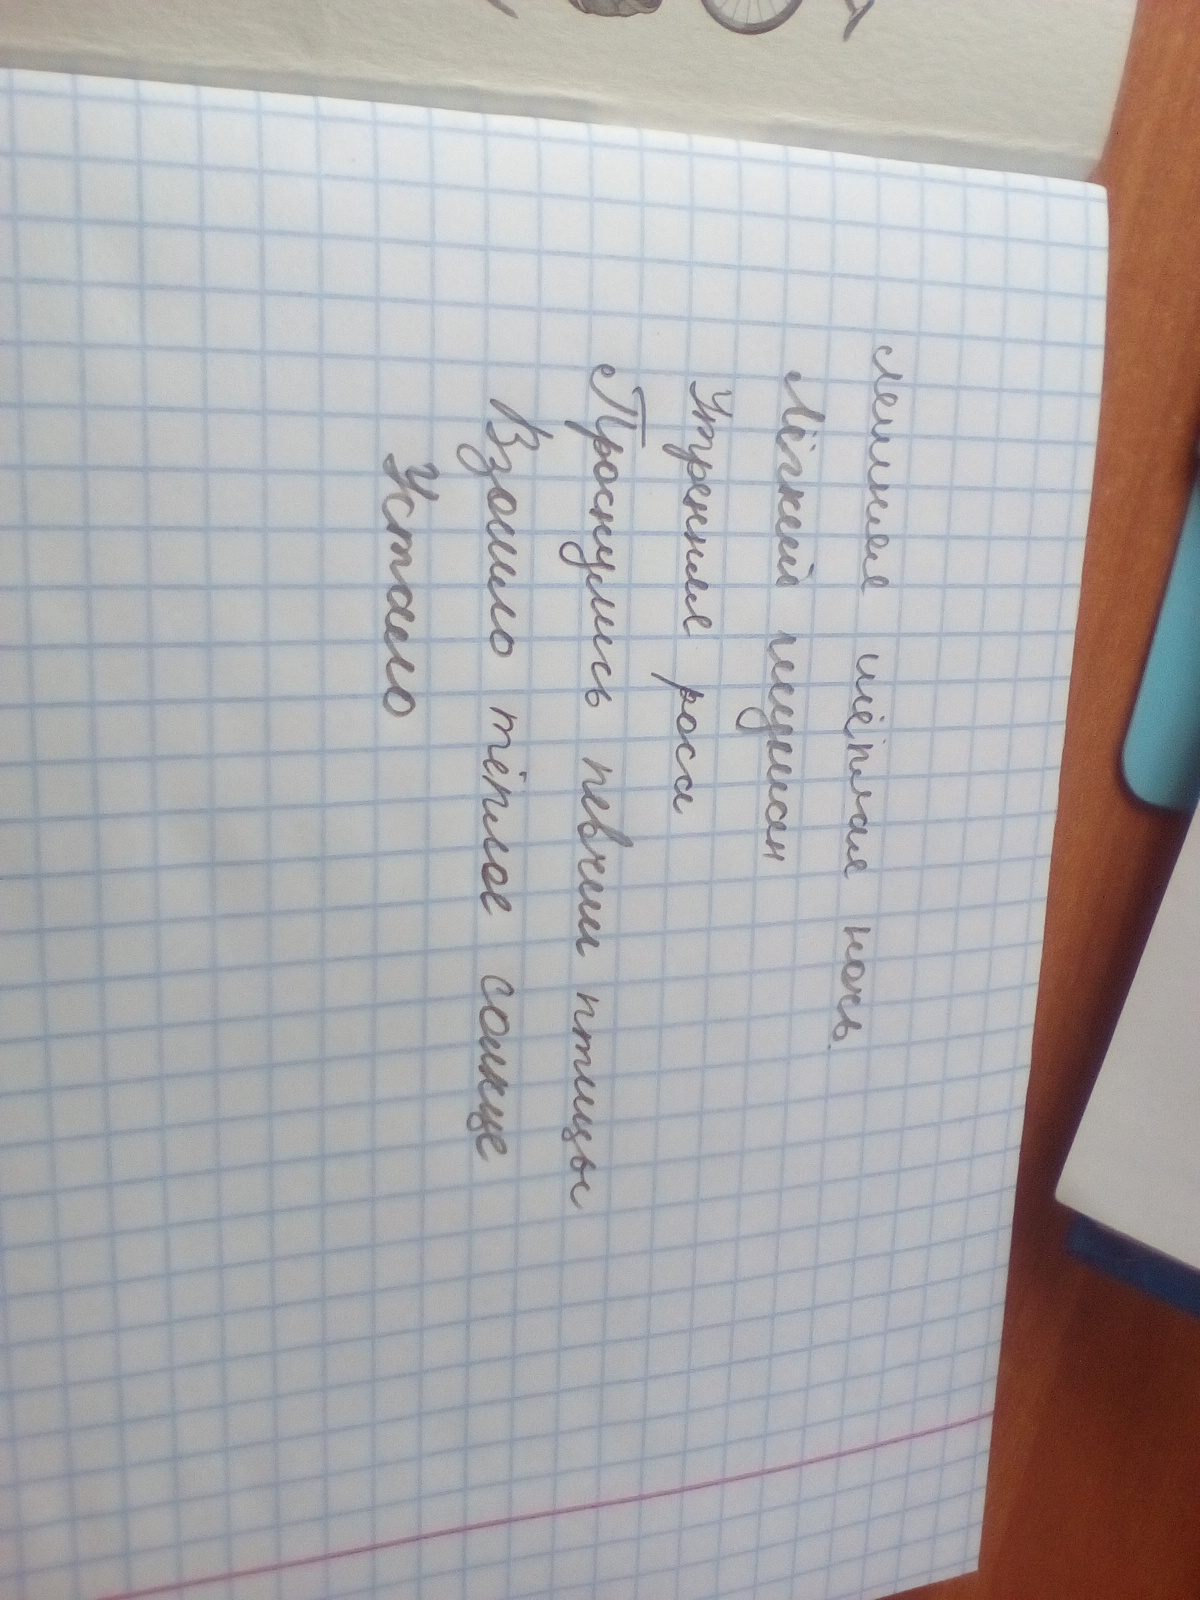 летняя тёплая ночь.
Лёгкий туман
Утренняя роса
Проснулись певчии птицы
Взошло тёплое солнце
Устало